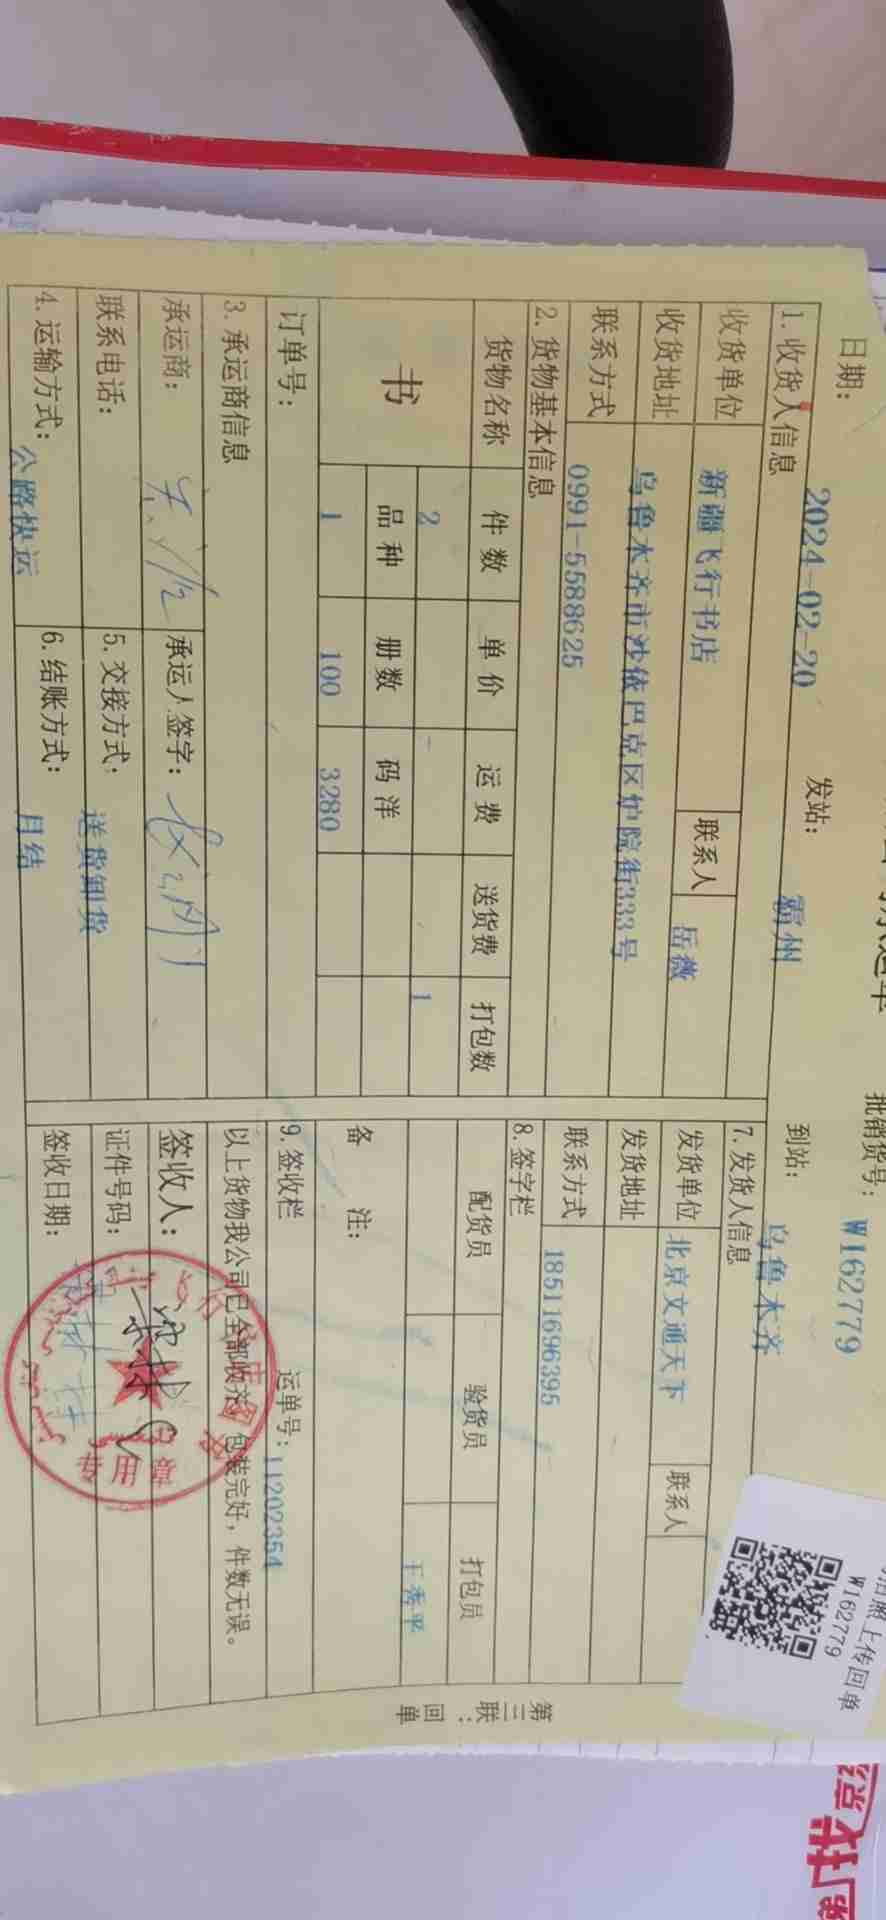 批销货号： W162779
日期： 2024-02-20 发站： 霸州 到站： 乌鲁木齐
1. 收货人信息
收货单位 新疆飞行书店 联系人 岳薇
收货地址 乌鲁木齐市沙依巴克区炉院街333号
联系方式 0991-5588625
2. 货物基本信息
货物名称 件数 单价 运费 送货费 打包数
书 2 1
品种 册数 码洋
1 100 3280
订单号：
3. 承运商信息
承运商： 承运人签字：
联系电话： 5. 交接方式： 送货卸货
4. 运输方式： 公路快运 6. 结账方式： 月结
7. 发货人信息
发货单位 北京文通天下 联系人
发货地址
联系方式 18511696395
8. 签字栏
配货员 验货员 打包员
王秀平
备 注：
9. 签收栏 运单号：11202354
以上货物我公司已全部收齐，包装完好，件数无误。
签收人：
证件号码：
签收日期：
专用章
第三联：回单
拍照上传回单
W162779